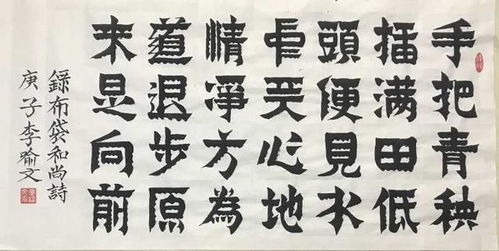 手把青秧
插满田低
頭便見水
中天心地
情凈方為
道退步原
来是向前
録布袋和尚詩
庚子李喻文